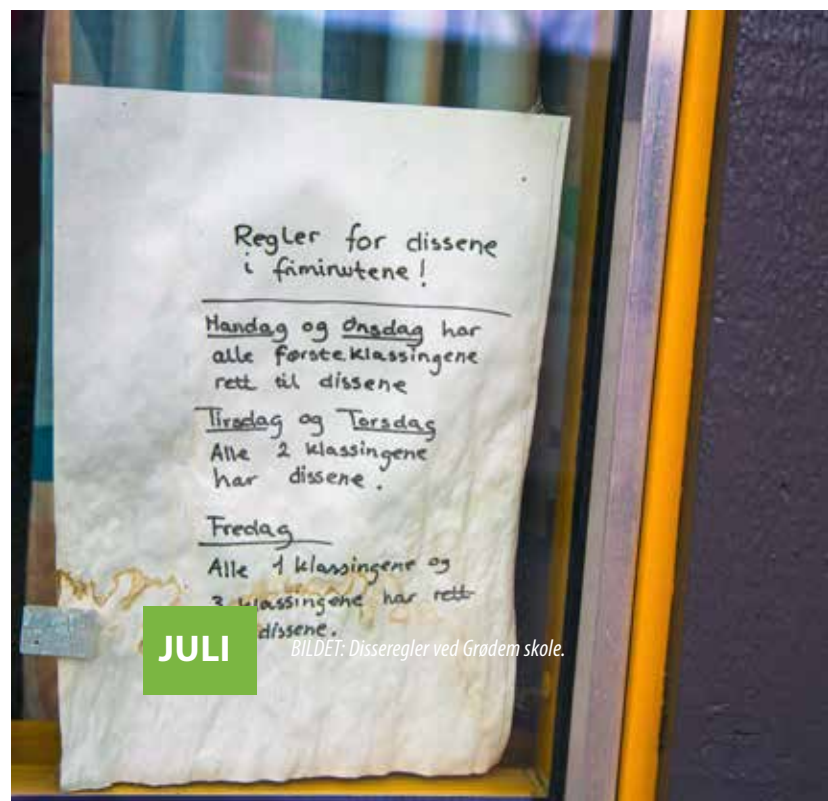 Regler for dissene
i friminutene!
Mandag og Onsdag har
alle førsteklassingene
rett til dissene
Tirsdag og Torsdag
Alle 2 klassingene
har dissene.
Fredag
Alle 1 klassingene og
3 klassingene har rett
dissene.
JULI
BILDET: Disseregler ved Grødem skole.